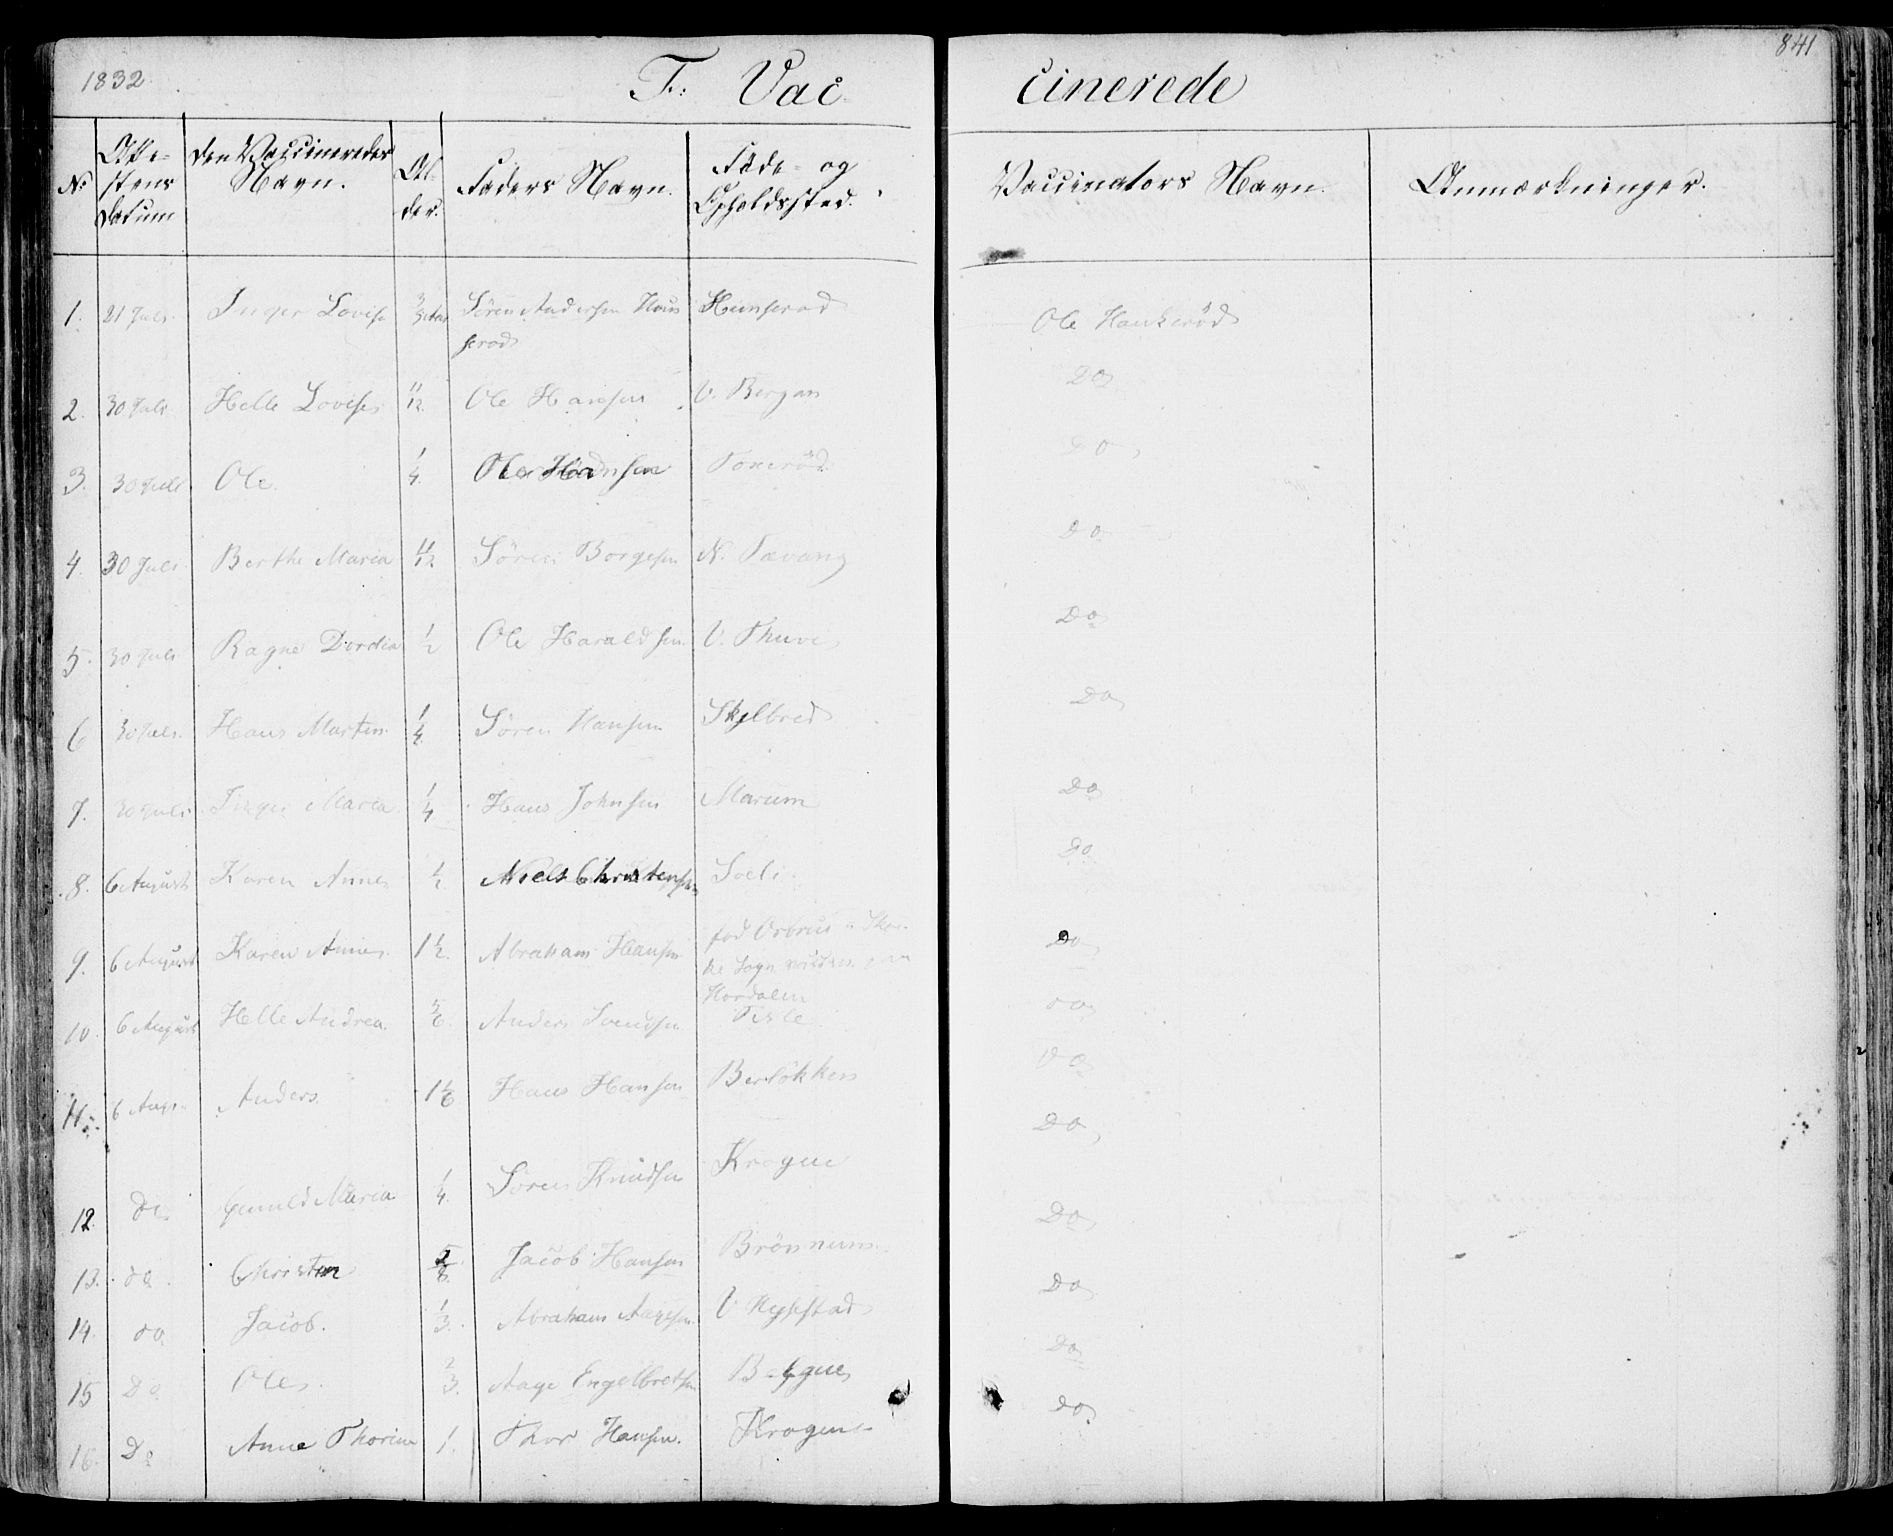 1832
F. Vaccinerede
841
No
Atte-
stens
Datum
den Vaccineredes
Navn.
Al-
der.
Faders Navn.
Føde- og
Opholdssted.
Vaccinators Navn.
Anmærkninger.
1. 21 Juli Inger Lovise 3 Søren Andersen Hun Hunserød Ole Haukerød
serød
2. 30 Juli Helle Lovise 11/12 Ole Hansen V. Bergan Do
3. 30 Juli Ole 1/4 Ole Hansen Tonerød Do
4. 30 Juli Berthe Maria 11/12 Søren Borgesen N. Tævang Do
5. 30 Juli Ragne Dordia 1/2 Ole Haraldsen V. Thuve Do
6 30 Juli Hans Martin 1/4 Søren Hansen Skjelbred Do
7. 30 Juli Inger Maria 1/4 Hans Johnsen Marum Do
8. 6 August Karen Anne 1/2 Niels Christensen Soeli Do
9. 6 August Karen Anne 1 1/2 Abraham Hansen fød i
ke Sogn Do
Hordalen
10. 6 August Helle Andrea 5/6 Anders Svendsen do
11. 6 Aug. Anders 1 1/6 Hans Hansen Berløkken Do
12. do Maria 1/4 Søren Knudsen Krogne Do
13. do. Christen 5/8 Jacob Hansen Brønnum Do
14. do Jacob. 1/3 Abraham Aagesen V Do
15 Do Ole 2/3. Aage Engelbretsen Do
16. Do Anne Thorine 1. Thor Hansen. Krogene do